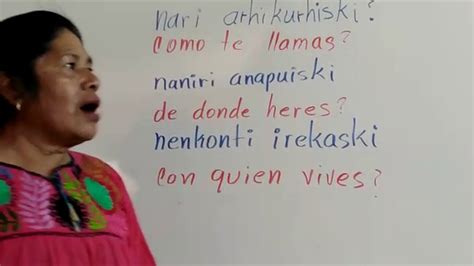 nari arhikurhiski?
Como te llamas?
naniri anapuiski
de donde heres?
nenkonti irekaski
Con quien vives?